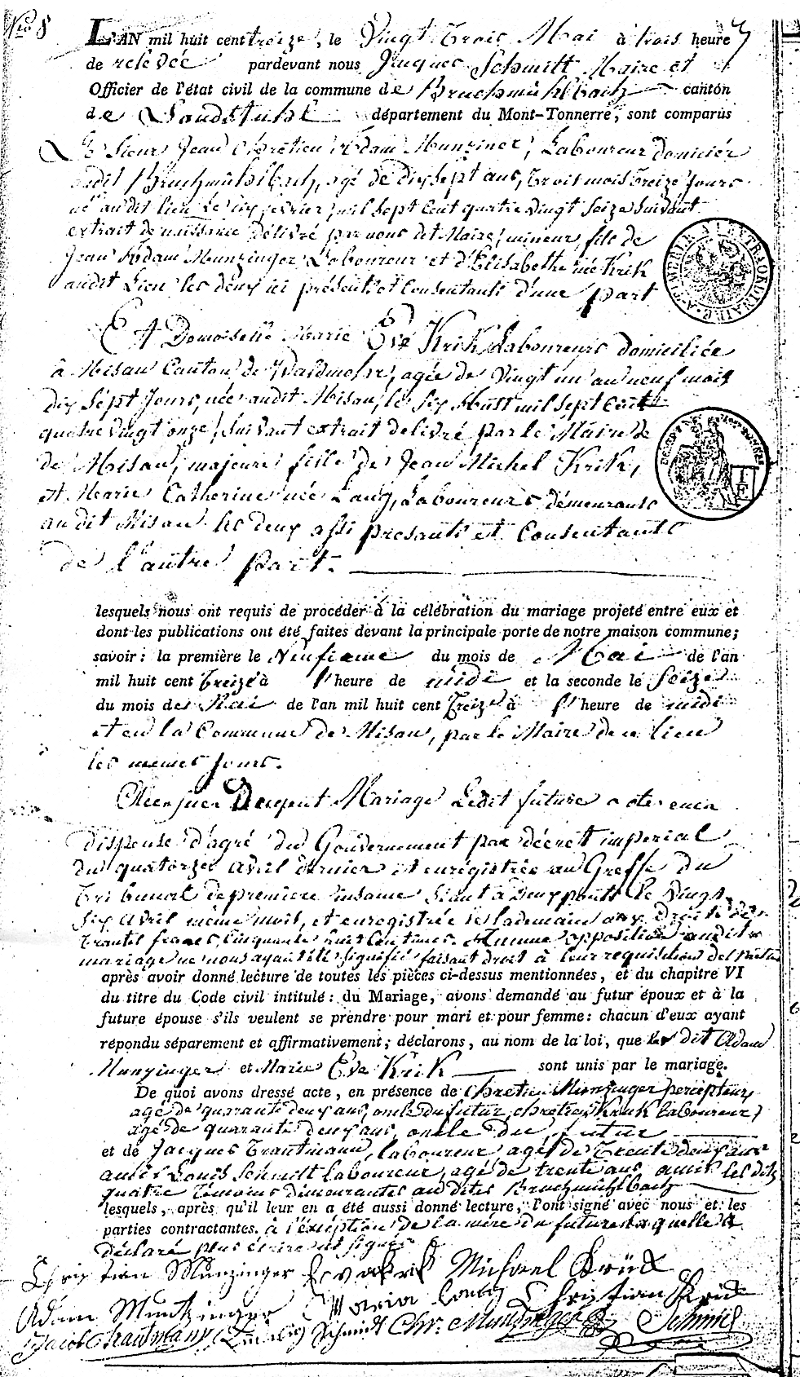 Nro 8
L'AN mil huit cent treize, le Vingt trois Mai à trois heure
de relevée pardevant nous Jacques Schmitt Maire et
Officier de l'état civil de la commune de Bruchmühlbach canton
de Landstuhl département du Mont-Tonnerre, sont comparus
Le Sieur Jean Chretien Adam Munzinger, Laboureur domicilié
audit Bruchmühlbach, agé de dix sept ans, trois mois treize jours
né audit lieu le dix fevrier, mil sept cent quatre vingt seize suivant
extrait de naissance délivré par nous dit Maire, mineur fils de
Jean Adam Munzinger Laboureur et d'Elisabethe née Krik
audit Lieu les deux ici présents et consentants d'une part
Et Domoiselle Marie Eve Krik Laboureurs domiciliée
à Misau Canton de Waldmohr, agée de Vingt un an neuf mois
dix Sept Jours, née audit Misau, le six Autt mil sept cent
quatre vingt onze, suivant extrait delivré par le Maire
de Misau, majeure fille de Jean Michel Krik,
et Marie Catherine née Lang, Laboureurs démeurants
audit Misau les deux assi présants et Consentants
de l'autre part.
lesquels nous ont requis de procéder à la célébration du mariage projeté entre eux et
dont les publications ont été faites devant la principale porte de notre maison commune;
savoir: la première le Neufieme du mois de Mai de l'an
mil huit cent treize à l'heure de midi et la seconde le Seize
du mois de Mai de l'an mil huit cent treize à l'heure de midi
et en la Commune de Misau, par le Maire de ce lieu
les memes jours.
Mariage Ledit future a
dispense d'agé du Gouvernement par décret imperial
du quatorze avril dernier et enrégistrée au Greffe du
Tribunal de premiere instance séant à Deuxponts le Vingt
six avril même mois, et enregistrée le lademain aux droits de
trantil francs, cinquante huit centimes. Aucune opposition audit
mariage ne nous ayant été signifié faisant droit à leur requisition
après avoir donné lecture de toutes les pièces ci-dessus mentionnées, et du chapitre VI
du titre du Code civil intitulé: du Mariage, avons demandé au futur époux et à la
future épouse s'ils veulent se prendre pour mari et pour femme: chacun d'eux ayant
répondu séparement et affirmativement; déclarons, au nom de la loi, que le dit Adam
Munzinger et Marie Eve Krik sont unis par le mariage.
De quoi avons dressé acte, en présence de Chretien Munzinger percepteur
agé de quarante deux ans, oncle du futur, Chretien Kruk laboureur,
agé de quarante deux ans, oncle du futur
et de Jacques Trautmann, laboureur agé de Trente deux ans
amis Louis Schmitt Laboureur, agé de trente ans, amis les dits
quatre témoins démourantes au dites Bruchmühlbach
lesquels, après qu'il leur en a été aussi donné lecture, l'ont signé avec nous et les
parties contractantes. à l'exéption de la mère du future laquelle a
déclaré
Christian Munzinger Eva Krik Michael Krück
Adam Muntzinger Maria Christian Krük
Jacob Trautmann Ludwig Schmidt Chr. Munzinger Schmitt